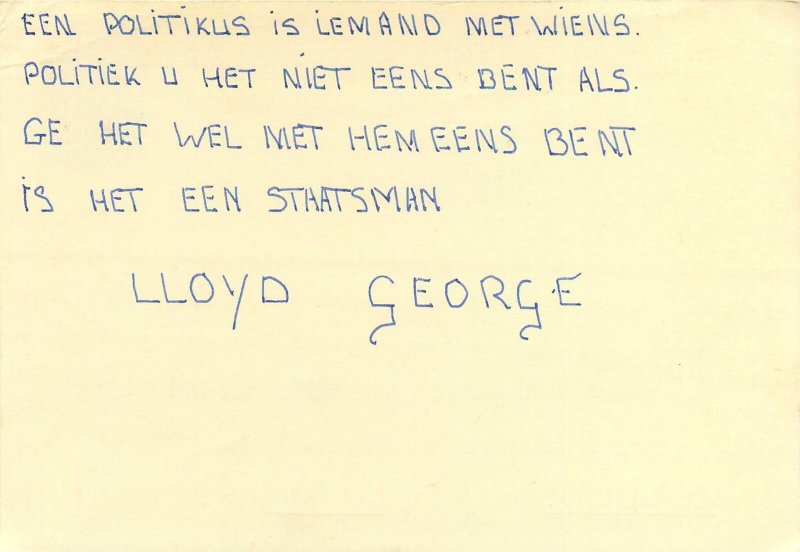 EEN POLITIKUS iS iEMAND MET WIENS.
POLITIEK U HET NIET EENS BENT ALS.
GE HET WEL MET HEM EENS BENT
iS HET EEN STAATSMAN
LLOYD GEORGE